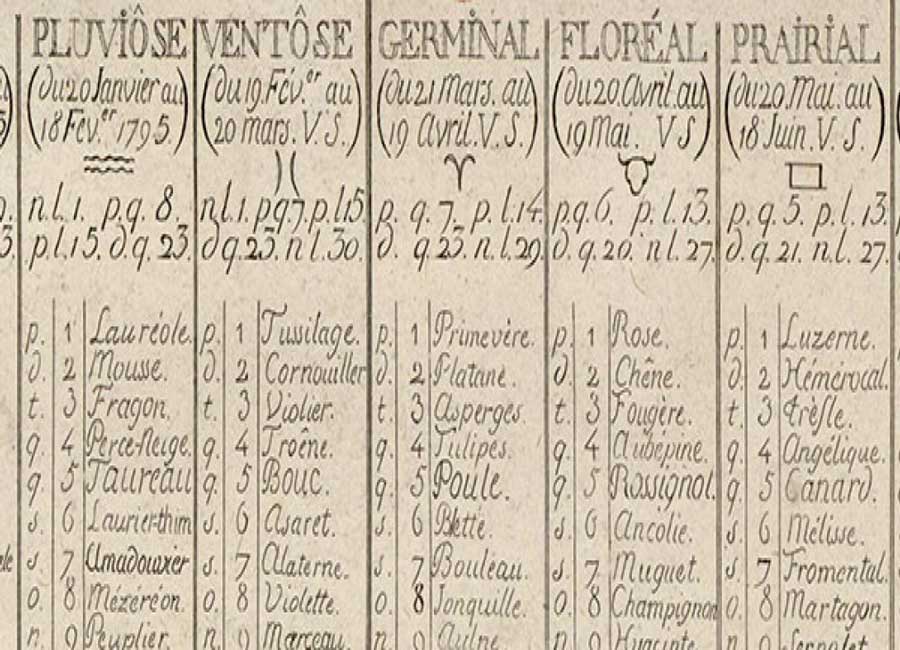 PLUVIÔSE
(du 20 Janvier au
18 Fév.er 1795.)
n.l.1. p.q. 8.
p.l.15. d.q. 23.
p. 1 Lauréole.
d. 2 Mousse.
t. 3 Fragon.
q. 4 Perce-Neige.
q. 5 Taureau
s. 6 Laurier-thim
s. 7 Amadouvier
o. 8 Mézéréon.
n. 9 Peuplier.
VENTÔSE
(du 19. Fév.er au
20 mars. V. S.)
n.l.1. p.q 7. p.l.15.
d.q.23. n.l.30.
p. 1 Tussilage.
d. 2 Cornouiller
t. 3 Violier.
q. 4 Troêne.
q. 5 Bouc.
s. 6 Asaret.
s. 7 Alaterne.
o. 8 Violette.
n. 9 Marceau.
GERMINAL
(du 21 Mars. au
19 Avril. V. S.)
p. q. 7. p. l.14.
d. q.23. n.l.29.
p. 1 Primevère.
d. 2 Platane.
t. 3 Asperges.
q. 4 Tulipes.
q. 5 Poule.
s. 6 Blette.
s. 7 Bouleau.
o. 8 Jonquille.
n. 9 Aulne.
FLORÉAL
(du 20. Avril. au
19 Mai. V S)
p.q.6. p.l.13.
d.q.20. n.l.27.
p. 1 Rose.
d. 2 Chêne.
t. 3 Fougère.
q. 4 Aubépine.
q. 5 Rossignol.
s. 6 Ancolie.
s. 7 Muguet.
o. 8 Champignon
n. 9 Hyacinte.
PRAIRIAL
(du 20. Mai. au
18 Juin. V. S.)
p. q. 5. p. l. 13.
d. q. 21. n.l. 27.
p. 1 Luzerne.
d. 2 Hémérocal.
t. 3 Trèfle.
q. 4 Angélique.
q. 5 Canard.
s. 6 Mélisse.
s. 7 Fromental.
o. 8 Martagon.
n. 9 Serpolet.